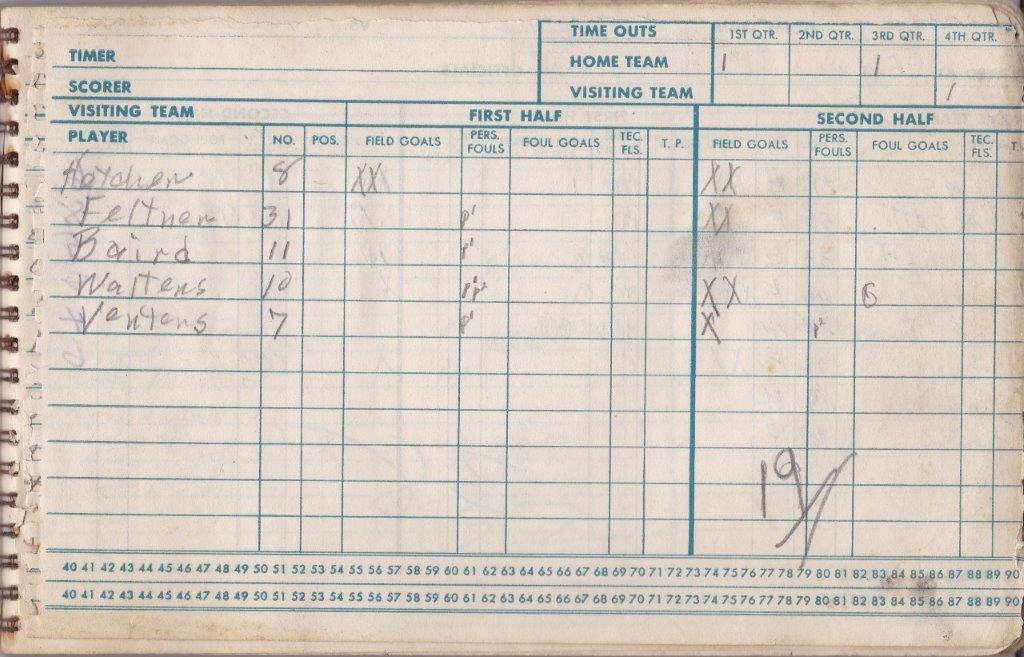 TIME OUTS 1ST QTR. 2ND QTR. 3RD QTR. 4TH QTR.
TIMER
HOME TEAM 1 1
SCORER
VISITING TEAM 1
VISITING TEAM FIRST HALF SECOND HALF
PLAYER NO. POS. FIELD GOALS PERS. FOULS FOUL GOALS TEC. FLS. T. P. FIELD GOALS PERS. FOULS FOUL GOALS TEC. FLS. T.
Hatcher 8 XX XX
Feltner 31 P1 XX
Baird 11 P1
Walters 10 P1 P2 XX
Venters 7 P1 X P2
19
40 41 42 43 44 45 46 47 48 49 50 51 52 53 54 55 56 57 58 59 60 61 62 63 64 65 66 67 68 69 70 71 72 73 74 75 76 77 78 79 80 81 82 83 84 85 86 87 88 89 90
40 41 42 43 44 45 46 47 48 49 50 51 52 53 54 55 56 57 58 59 60 61 62 63 64 65 66 67 68 69 70 71 72 73 74 75 76 77 78 79 80 81 82 83 84 85 86 87 88 89 90